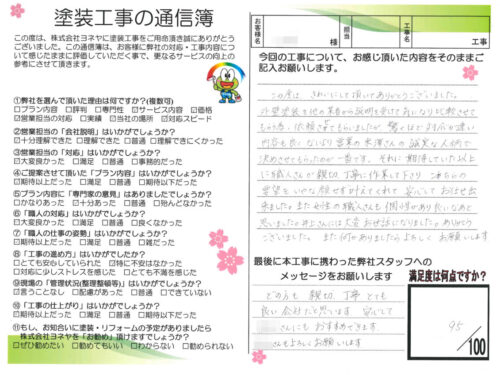 塗装工事の通信簿
この度は、株式会社ヨネヤに塗装工事をご用命頂き誠にありがとう
ございました。この通信簿は、お客様に弊社の対応・工事内容に
ついて感じたままに評価していただく事で、更なるサービスの向上の
参考にさせて頂きます。
①弊社を選んで頂いた理由は何ですか?(複数可)
□プラン内容 □評判 □専門性 ☑サービス内容 ☑価格
□営業担当の対応 □実績 □当社の場所 ☑対応スピード
②営業担当の「会社説明」はいかがでしょうか?
□十分理解できた □理解できた □普通 □理解できにくかった
③営業担当の「対応」はいかがでしょうか?
□大変良かった □満足 □普通 □事務的だった
④ご提案させて頂いた「プラン内容」はいかがでしょうか?
□期待以上だった □満足 □普通 □期待以下だった
⑤プラン内容に「専門家の意見」はありましたでしょうか?
□かなりあった □十分あった □普通 □殆んどなかった
⑥「職人の対応」はいかがでしょうか?
□大変良かった □満足 □普通 □良くなかった
⑦「職人の仕事の姿勢」はいかがでしょうか?
□期待以上だった □満足 □普通 □雑だった
⑧「工事の進め方」はいかがでしたか?
□とても安心していられた □特に不安はなかった
□対応に少しストレスを感じた □とても不満を感じた
⑨現場の「管理状況(整理整頓等)」はいかがでしょうか?
□言うことなし □配慮があった □普通 □できていない
⑩「工事の仕上がり」はいかがでしょうか?
□期待以上だった □満足 □普通 □期待以下
⑪もし、お知合いに塗装・リフォームの予定がありましたら
株式会社ヨネヤを「お勧め」頂けますでしょうか?
□ぜひ勧めたい □勧めてもいい □わからない □勧められない
お客様名
様
担当
工事名
工事
今回の工事について、お感じ頂いた内容をそのままご
記入お願いします。
この度は きれいにして頂いてありがとうございました。
外壁塗装を他の業者から説明を受けて
内容も良くなにより営業の米澤さんの誠実な人柄で
決めさせてもらったのが一番です。それに期待していた以上
に職人さんが親切、丁寧に作業して下さり
ございました。また何かありましたらよろしくお願いします
最後に本工事に携わった弊社スタッフへの
メッセージをお願いします
どの方も 親切、丁寧 とても
良い会社だと思います。安心して
さんにもおすすめできます。
さんもよろしくお願いします
満足度は何点ですか?
95
/100